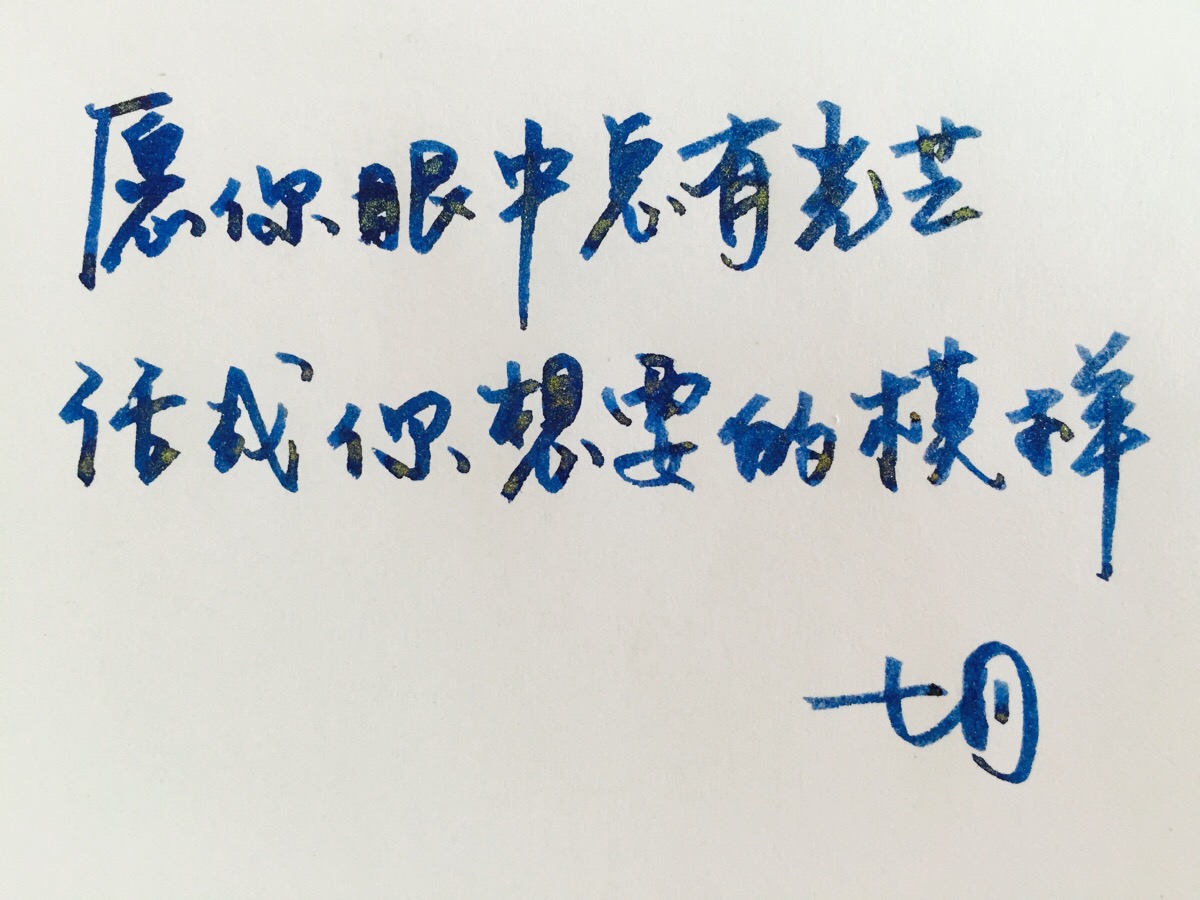 愿你眼中总有光芒
活成你想要的模样
七月